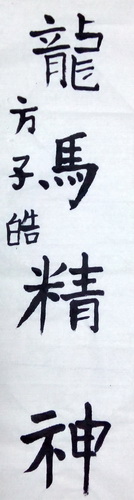 龍馬精神
方子皓